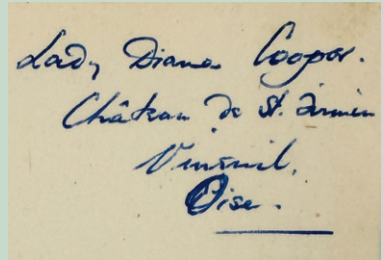 Lady Diana Cooper.
Château de St. Firmin
Vineuil.
Oise.